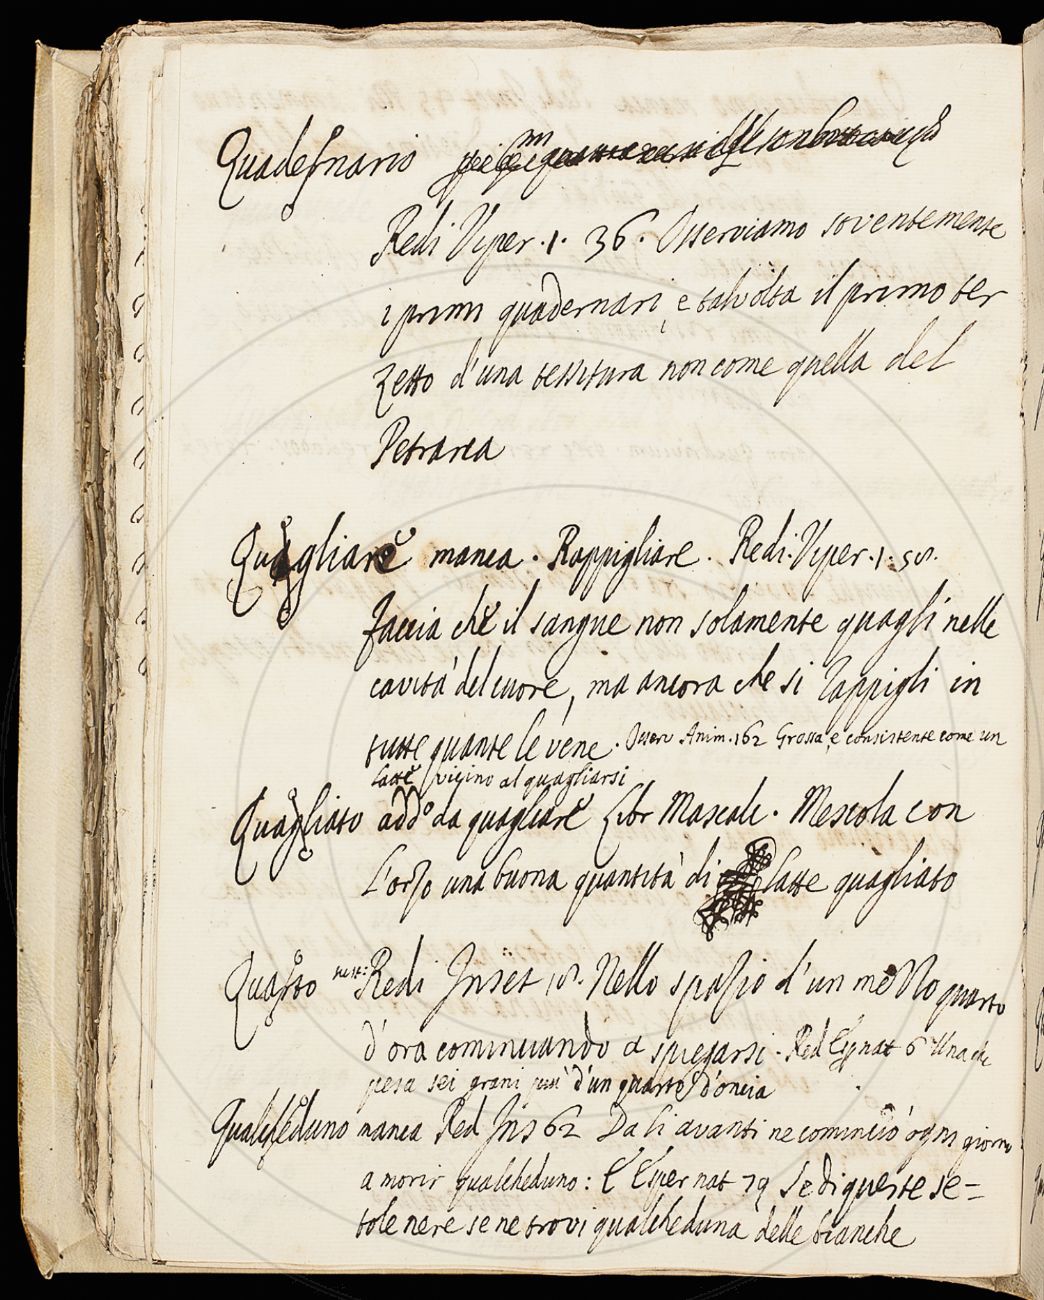 Quadernario
Redi Viper. 1. 36. Osserviamo soventemente
i primi quadernari, e talvolta il primo ter
zetto d'una tessitura non come quella del
Petrarca
Quagliare manca. Rappigliare. Redi. Viper. 1. 58.
faccia che il sangue non solamente quagli nelle
cavità del cuore, ma ancora che si rappigli in
tutte quante le vene. Osserv Anim. 162 Grossa, e consistente come un
latte vicino al quagliarsi
Quagliato add.º da quagliare Libr Mascalc. Mescola con
l'orzo una buona quantità di latte quagliato
Quarto Redi Inset 18. Nello spazio d'un mezzo quarto
d'ora cominciando a spiegarsi. Red Esp nat 6 Una che
pesa sei grani più d'un quarto d'oncia
Qualcheduno manca Red Ins 62 Da lì avanti ne cominciò ogni giorno
a morir qualcheduno: E Esper nat 79 Se di queste se=
tole nere se ne trovi qualcheduna delle bianche